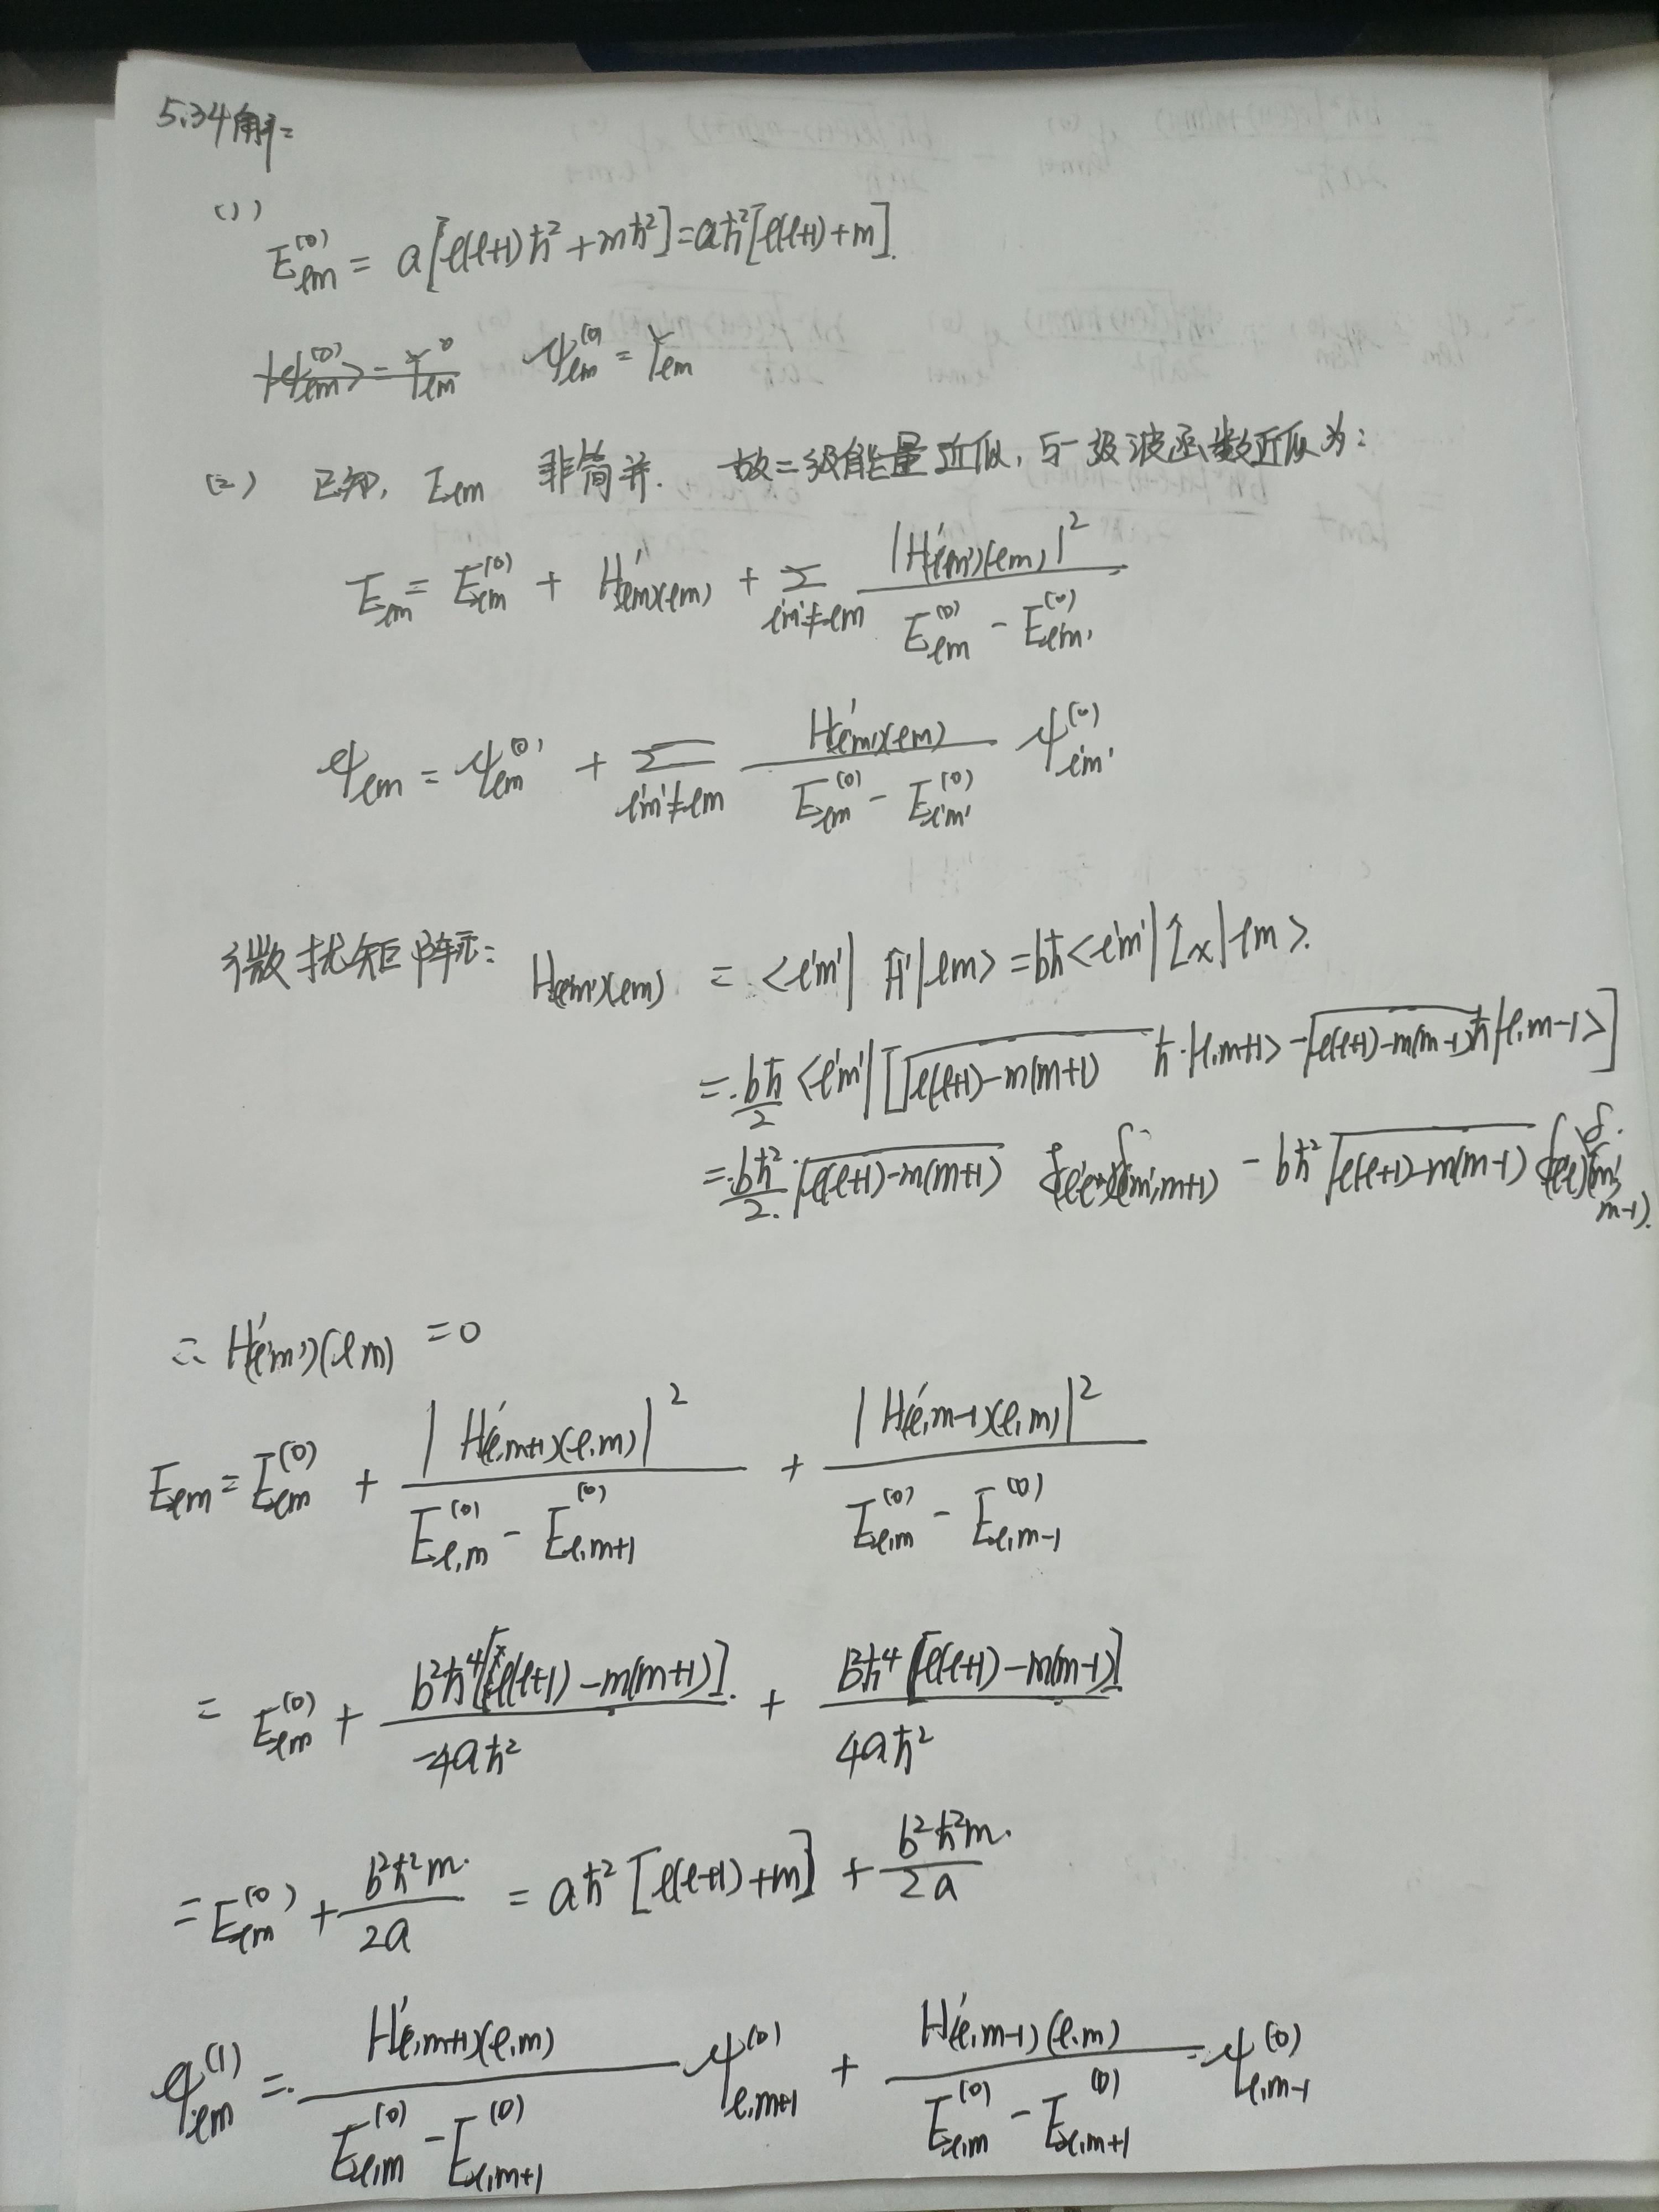 5.34解:
(1)
E_{lm}^{(0)} = a[l(l+1)ħ²+mħ²]=aħ²[l(l+1)+m].
ψ_{lm}^{(0)} = Y_{lm}
(2) 已知, E_{lm} 非简并. 故二级能量近似, 与一级波函数近似为:
E_{lm} = E_{lm}^{(0)} + H'_{(lm)(lm)} + Σ_{l'm'≠lm} |H'_{(l'm')(lm)}|² / (E_{lm}^{(0)} - E_{l'm'}^{(0)})
ψ_{lm} = ψ_{lm}^{(0)} + Σ_{l'm'≠lm} H'_{(l'm')(lm)} / (E_{lm}^{(0)} - E_{l'm'}^{(0)}) ψ_{l'm'}^{(0)}
微扰矩阵元: H'_{(l'm')(lm)} = <l'm'|Ĥ'|lm> = bħ<l'm'|L̂x|lm>.
= bħ/2 <l'm'|[√(l(l+1)-m(m+1)) ħ·|l,m+1> - √(l(l+1)-m(m-1)) ħ|l,m-1>]
= bħ²/2 √(l(l+1)-m(m+1)) δ_{(l'l)}δ_{(m',m+1)} - bħ²√(l(l+1)-m(m-1)) δ_{(l'l)}δ_{(m',m-1)}.
∴ H'_{(l'm')(lm)} = 0
E_{lm} = E_{lm}^{(0)} + |H'_{(l,m+1)(l,m)}|² / (E_{l,m}^{(0)} - E_{l,m+1}^{(0)}) + |H'_{(l,m-1)(l,m)}|² / (E_{l,m}^{(0)} - E_{l,m-1}^{(0)})
= E_{lm}^{(0)} + b²ħ⁴[l(l+1)-m(m+1)] / -4aħ² + b²ħ⁴[l(l+1)-m(m-1)] / 4aħ²
= E_{lm}^{(0)} + b²ħ²m / 2a = aħ²[l(l+1)+m] + b²ħ²m / 2a
ψ_{lm}^{(1)} = H'_{(l,m+1)(l,m)} / (E_{l,m}^{(0)} - E_{l,m+1}^{(0)}) ψ_{l,m+1}^{(0)} + H'_{(l,m-1)(l,m)} / (E_{l,m}^{(0)} - E_{l,m+1}^{(0)}) ψ_{l,m-1}^{(0)}